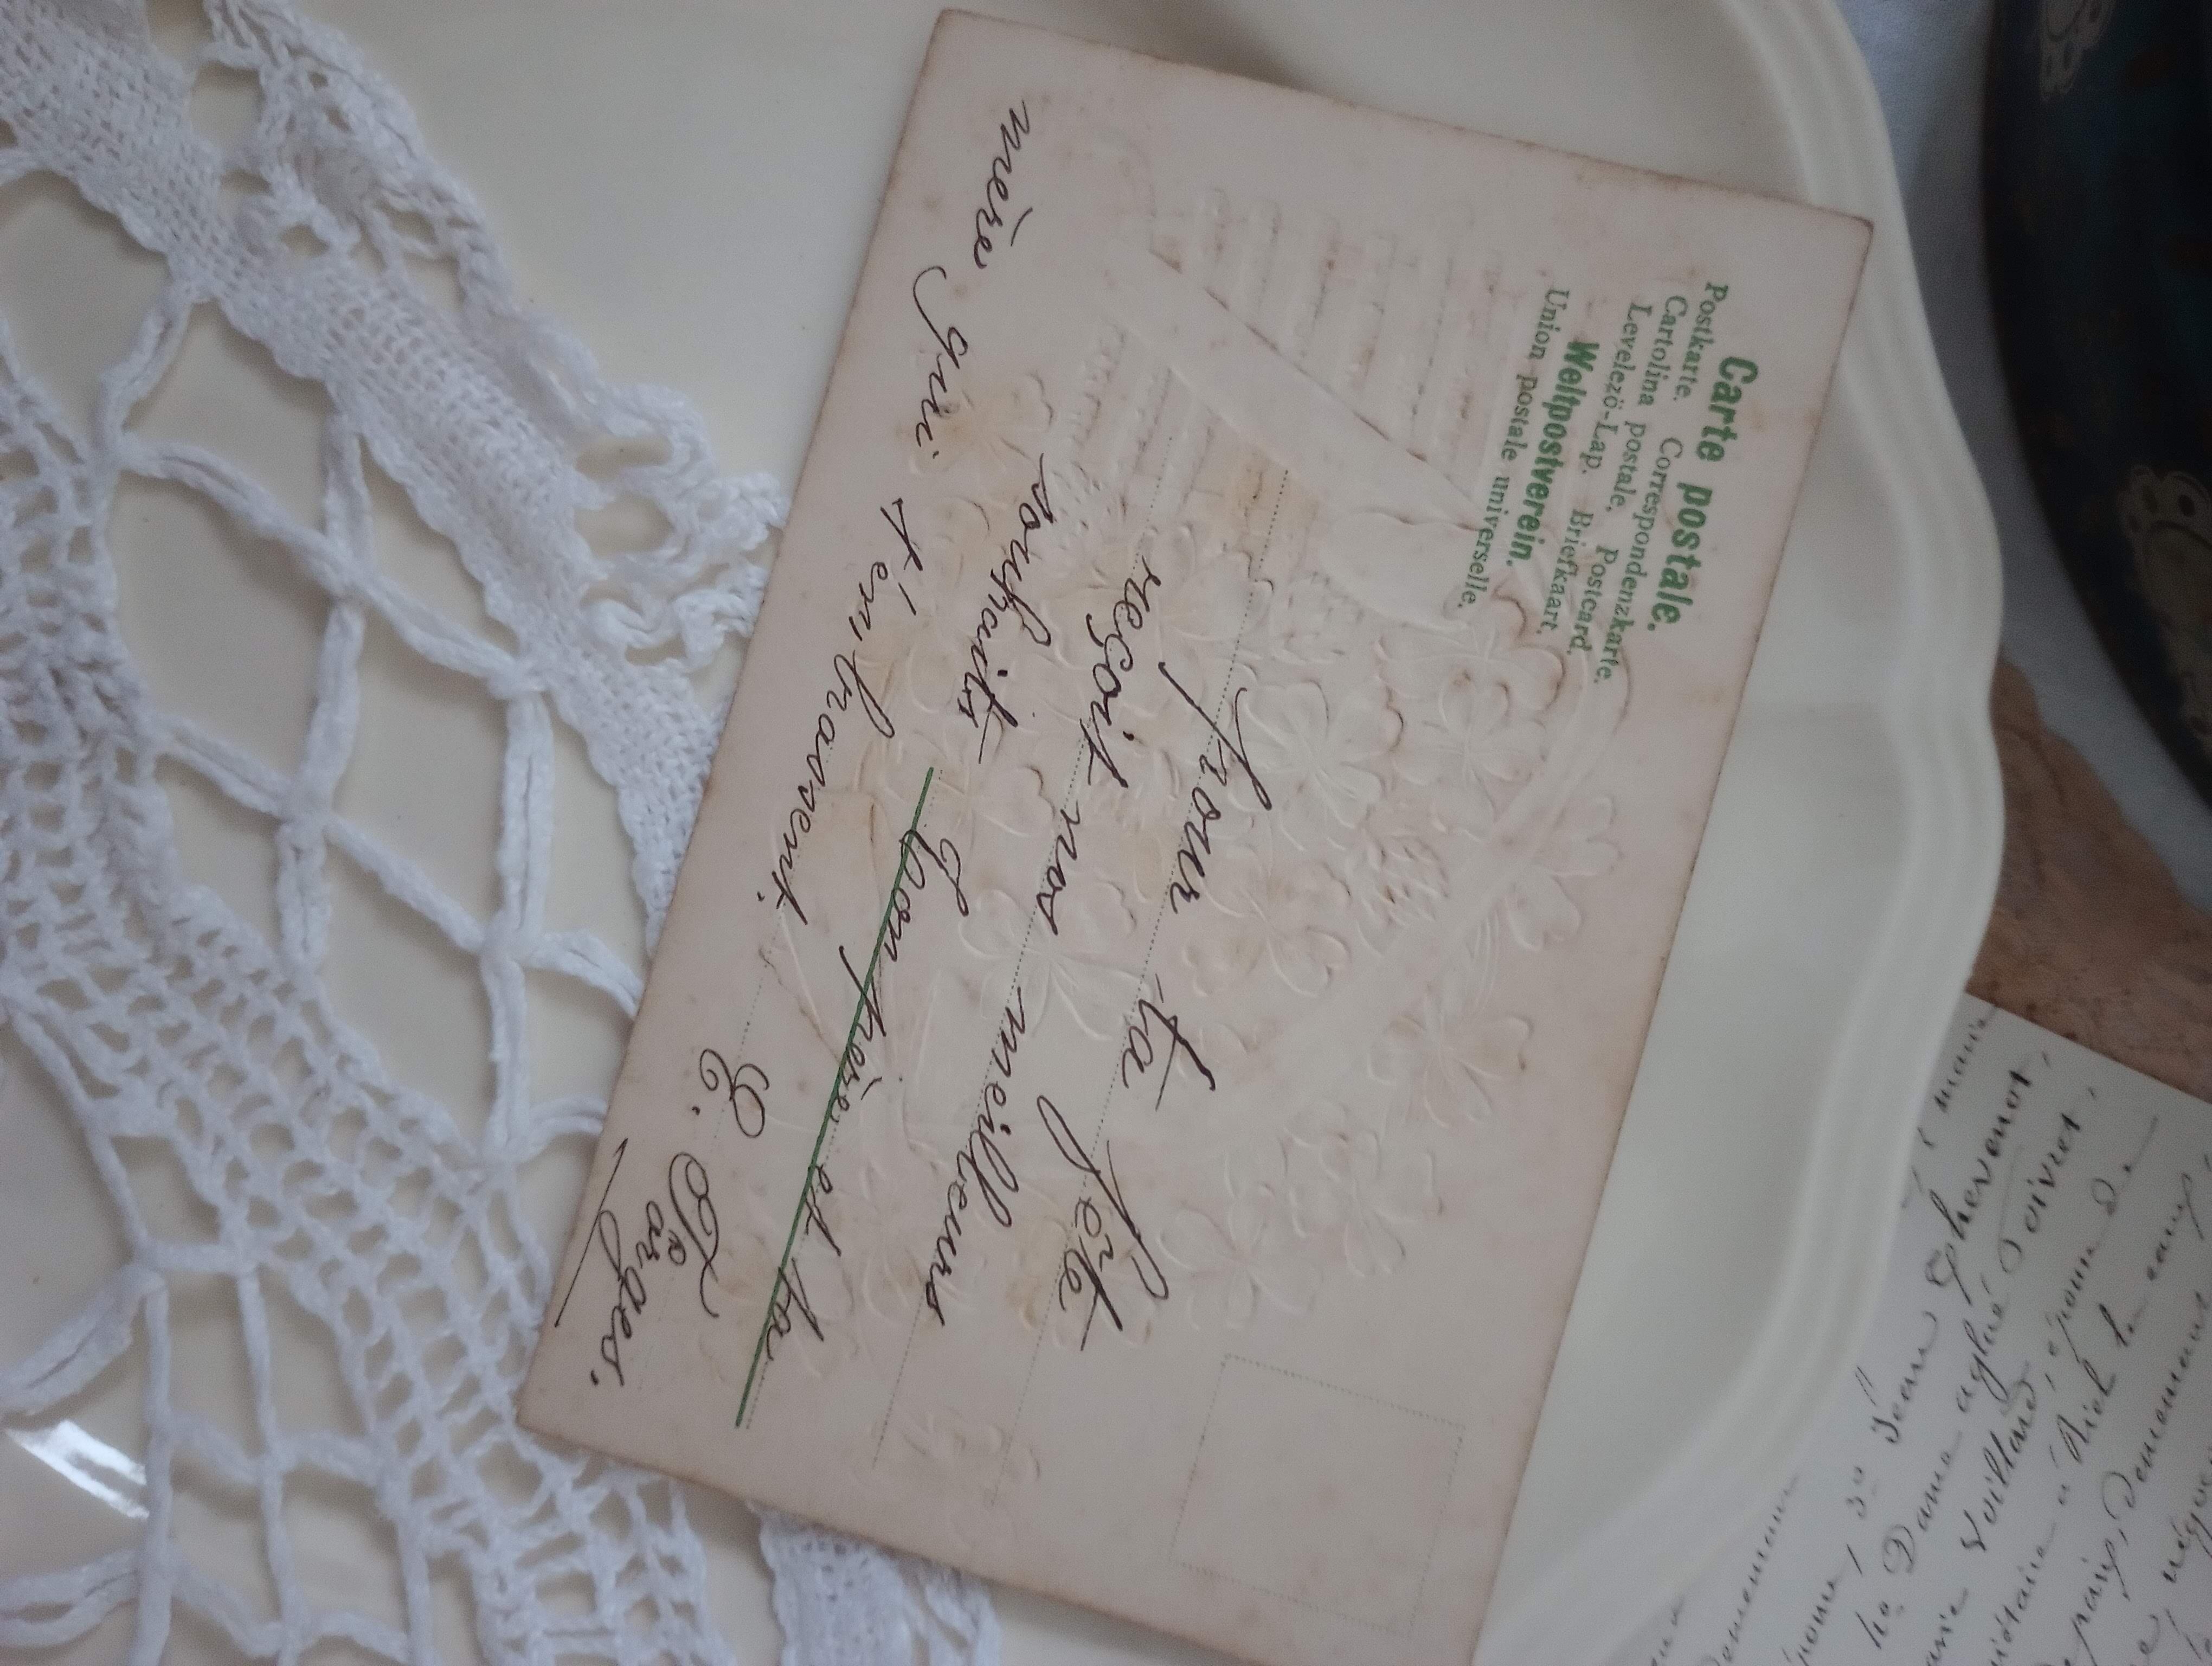 Carte postale.
Postkarte. Correspondenzkarte.
Cartolina postale. Postcard.
Levelező-Lap. Briefkaart.
Weltpostverein.
Union postale universelle.
Pour ta fête
reçoit nos meilleurs
souhaits ton père et ta
mère qui t'embrassent.
E. Farges.
maria
1 3º Jean Chevenot,
la Dame aglaé Poivret,
Voillard, épouse de
à Riel les eaux